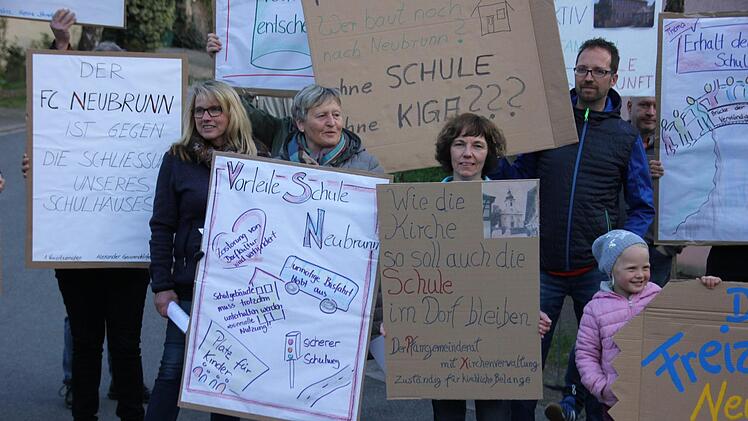 DER
FC NEUBRUNN
IST GEGEN
DIE SCHLIESSUNG
UNSERES
SCHULHAUSES
Wer baut noch
nach Neubrunn?
ohne SCHULE
ohne KIGA???
Erhalt de
Schul
Brücke der
Vorteile Schule
Neubrunn
Zerstörung von
Dorfkultur
wird verhindert
unnötige Busfahrt
fällt aus
Schulgebäude
muss trotzdem
unterhalten werden
sinnvolle
Nutzung
Platz für
Kinder
sicherer
Schulweg
Wie die
Kirche
so soll auch die
Schule
im Dorf bleiben
Der Pfarrgemeinderat
mit Kirchenverwaltung
zuständig für kirchliche Belange
Freiz
Neu